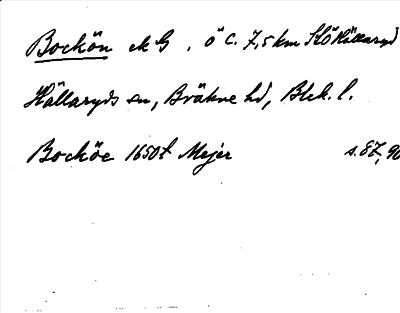 Bockön ek G, ö c. 7,5 km SÖ Hällaryd
Hällaryds sn, Bräkne hd, Blek. l.
Bocköe 1650t Mejer s. 87, 90